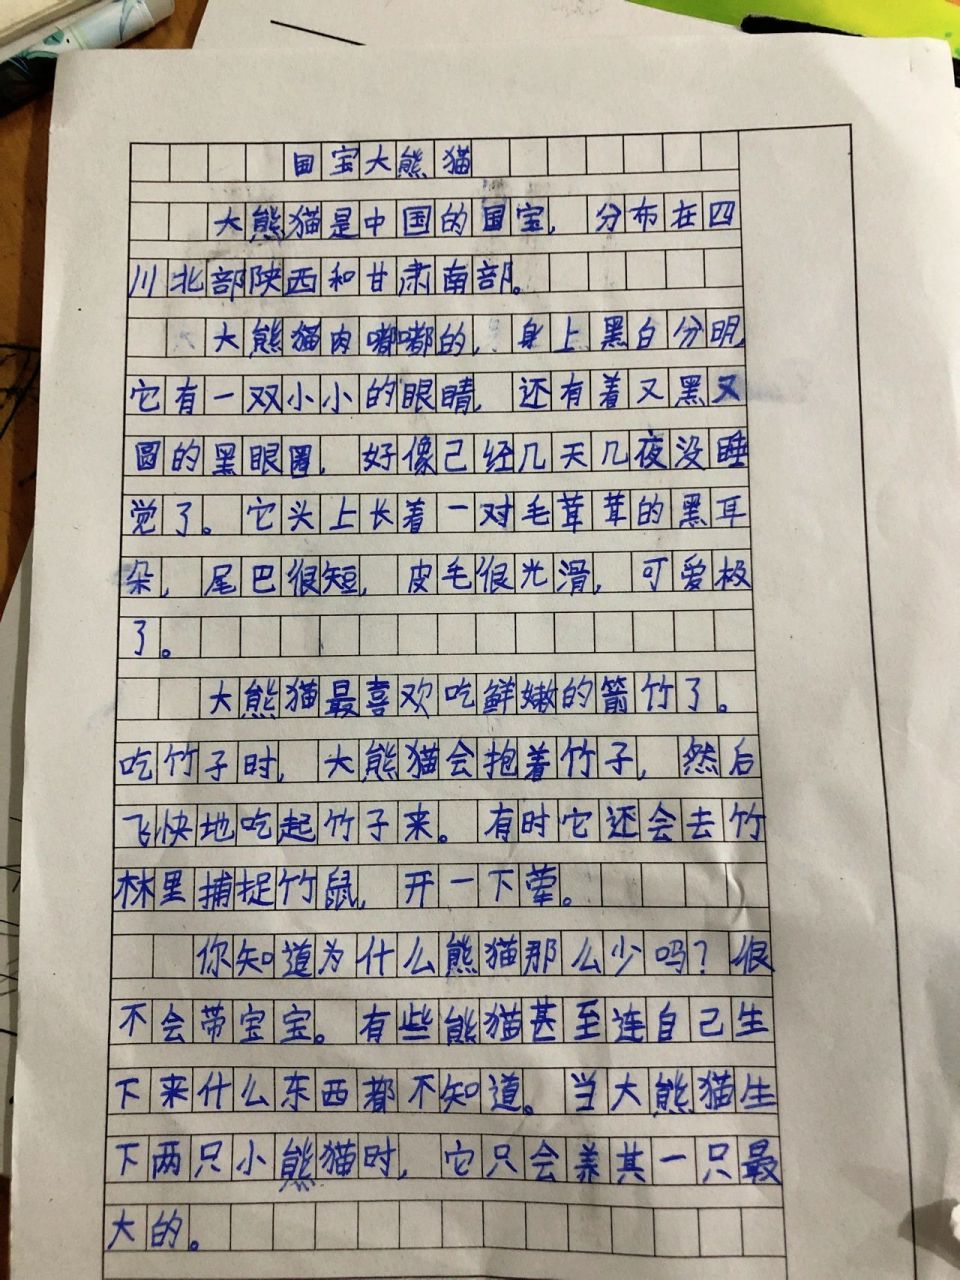 国宝大熊猫
大熊猫是中国的国宝，分布在四
川北部陕西和甘肃南部。
大熊猫肉嘟嘟的，身上黑白分明，
它有一双小小的眼睛，还有着又黑又
圆的黑眼圈，好像己经几天几夜没睡
觉了。它头上长着一对毛茸茸的黑耳
朵，尾巴很短，皮毛很光滑，可爱极
了。
大熊猫最喜欢吃鲜嫩的箭竹了。
吃竹子时，大熊猫会抱着竹子，然后
飞快地吃起竹子来。有时它还会去竹
林里捕捉竹鼠，开一下荤。
你知道为什么熊猫那么少吗？很
不会带宝宝。有些熊猫甚至连自己生
下来什么东西都不知道。当大熊猫生
下两只小熊猫时，它只会养其一只最
大的。